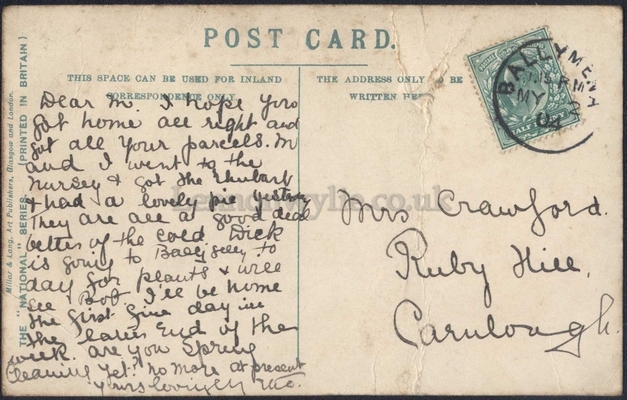 POST CARD.
THIS SPACE CAN BE USED FOR INLAND
CORRESPONDENCE ONLY
THE ADDRESS ONLY TO BE
WRITTEN HERE
Dear M. I hope you
got home all right and
got all your parcels. M
and I went to the
nursey & got the rhubarb
& had a lovely pie yestrey
They are all a good deal
better of the cold Dick
is going to to
day for plants & will
see Bob I'll be home
the first fine day in
the latter End of the
week. are you Spring
Cleaning yet? no more at present
yours lovingly
Mrs Crawford.
Ruby Hill,
Carnlough.
BALLYMENA
MY
04
THE "NATIONAL" SERIES. (PRINTED IN BRITAIN)
Millar & Lang, Art Publishers, Glasgow and London.